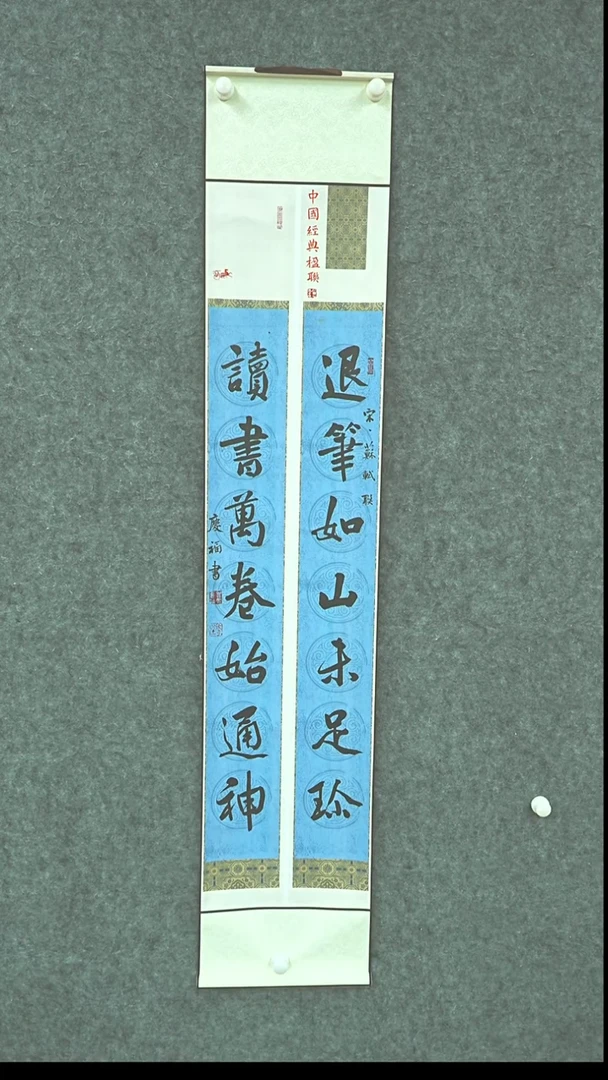 中國經典楹聯
退筆如山未足珎
宋·蘇軾联
讀書萬卷始通神
慶福書